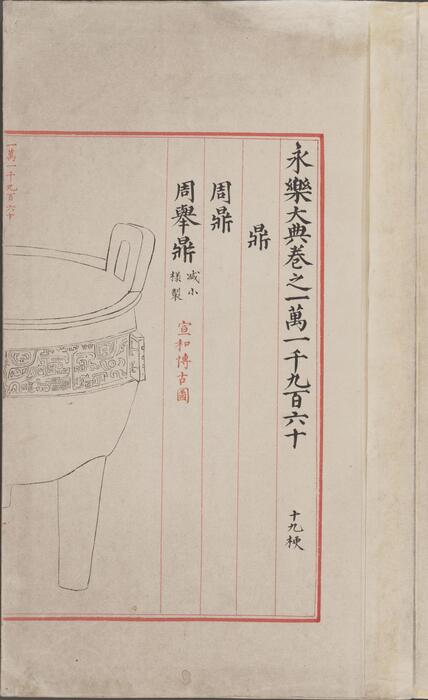 永樂大典卷之一萬一千九百六十 十九梗
鼎
周鼎
周舉鼎 減小樣製 宣和博古圖
一萬一千九百六十